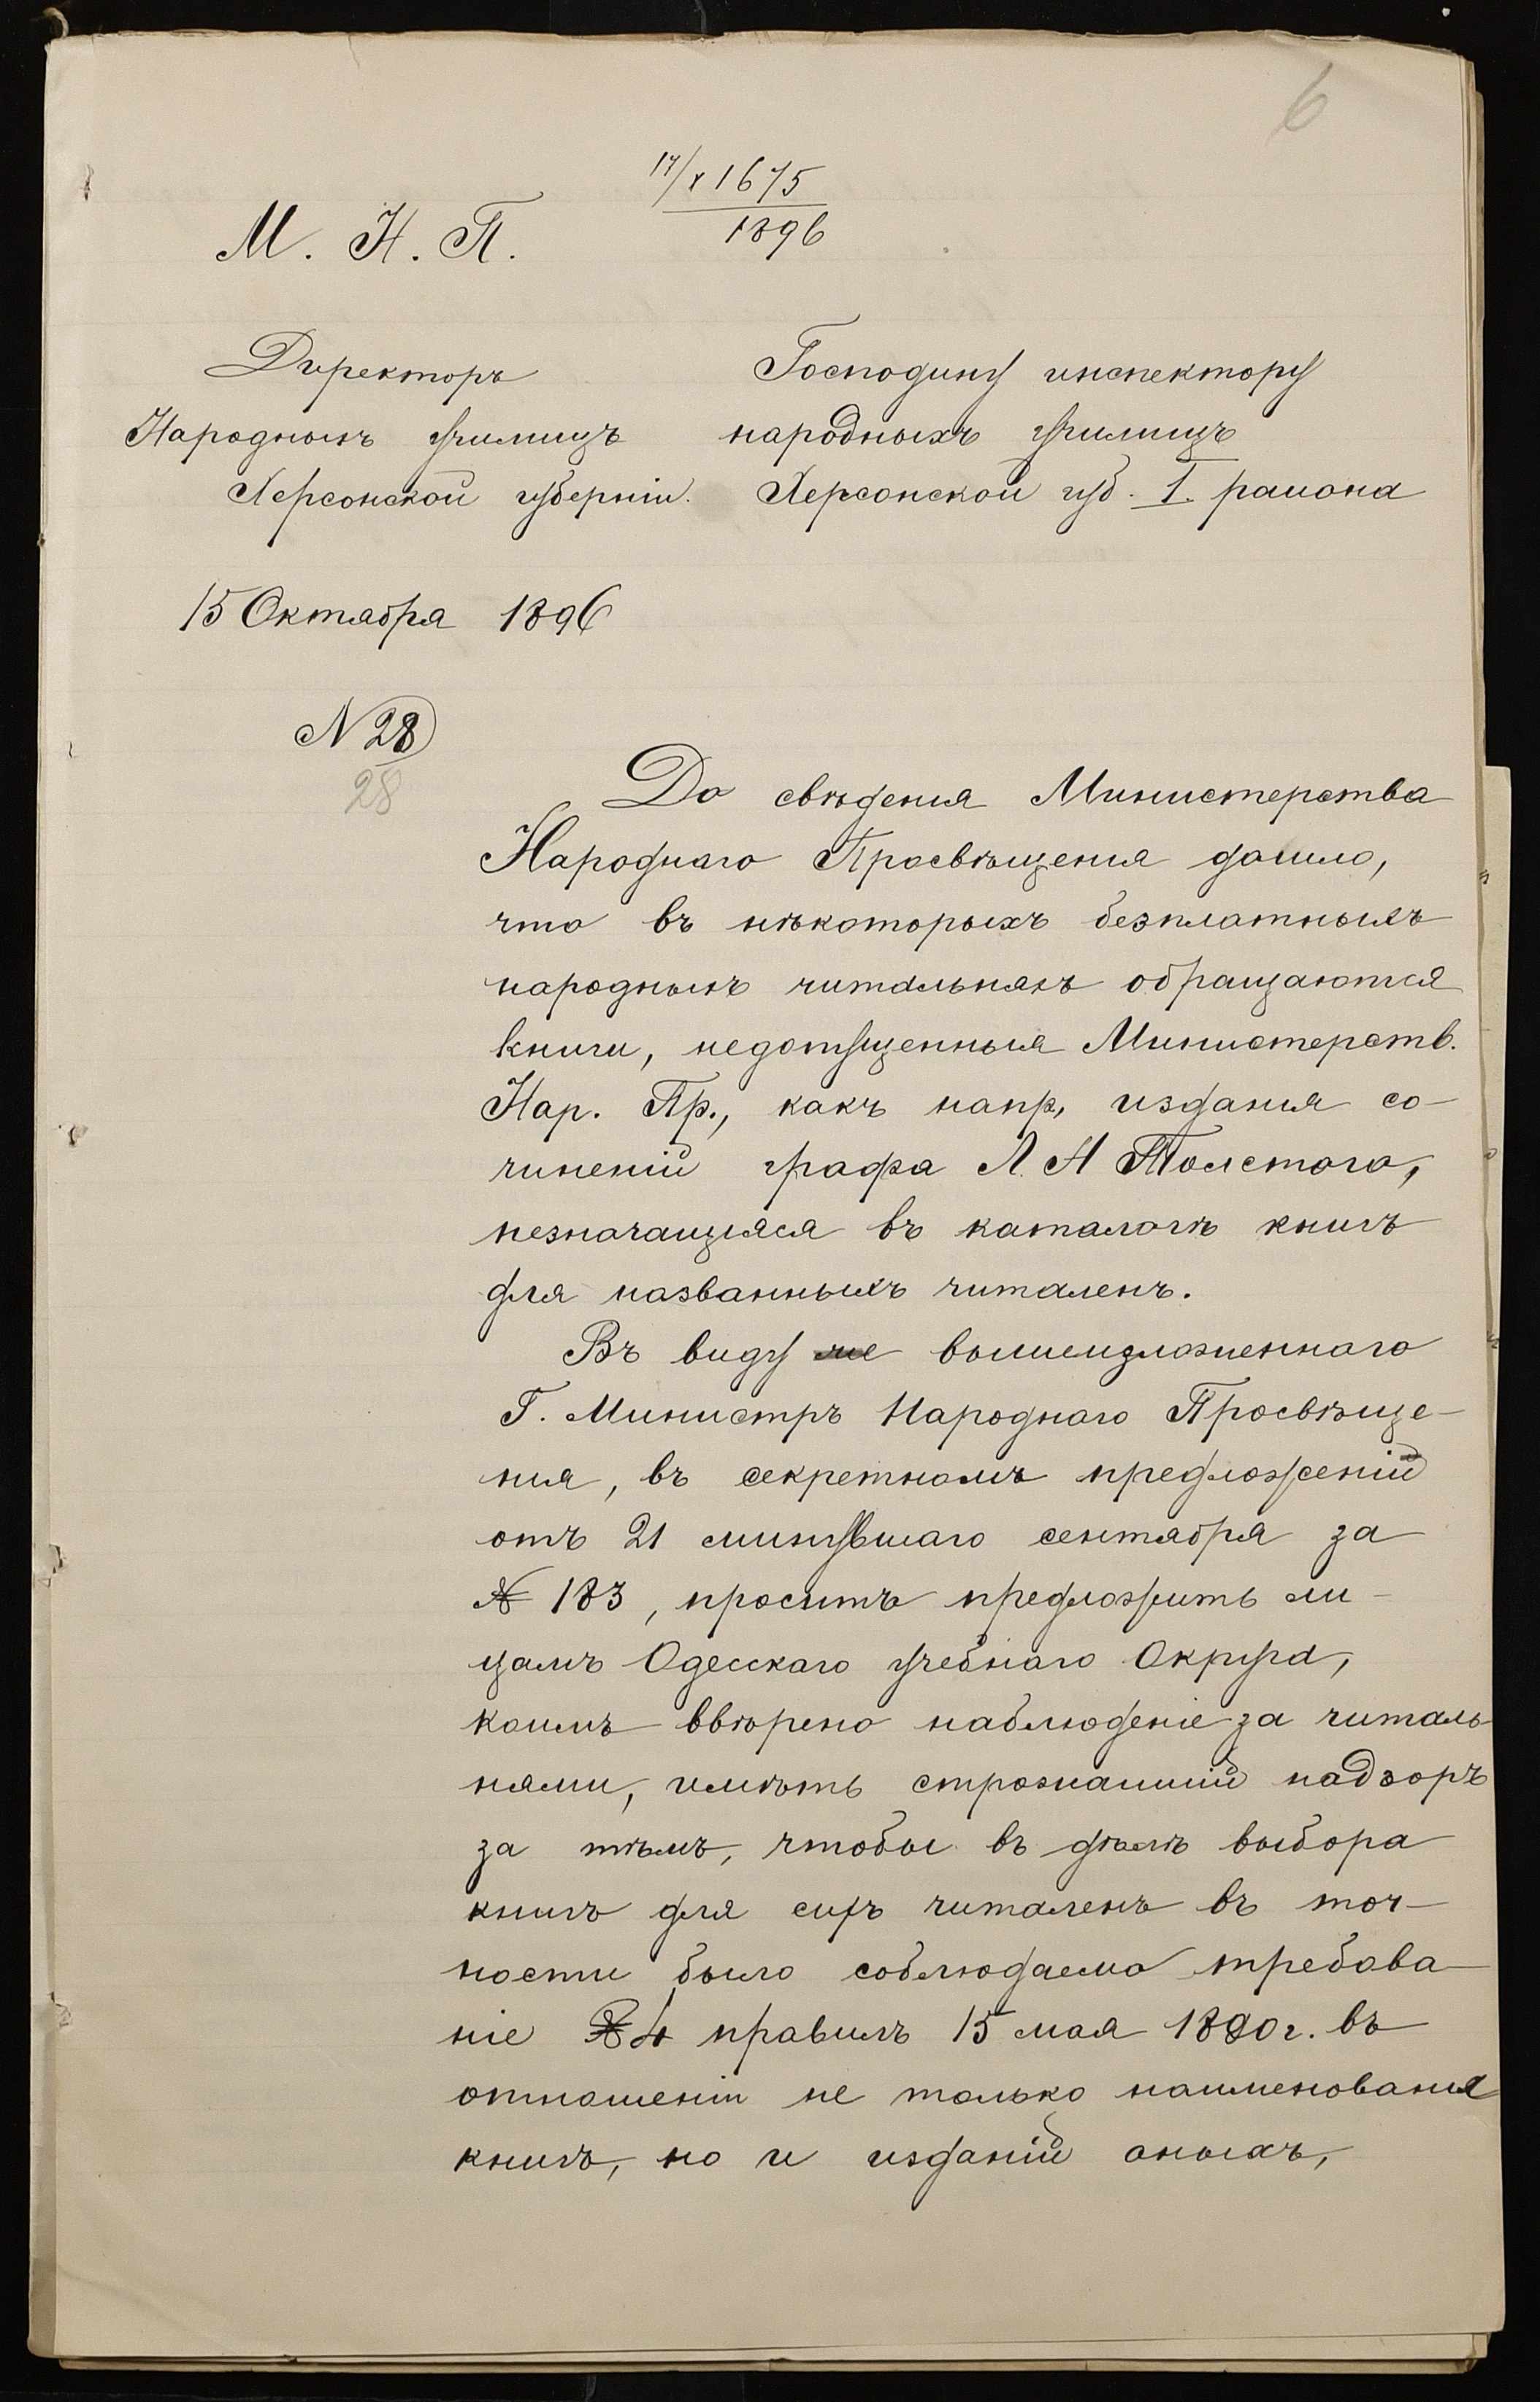 6
17/X 1675
1896
М. Н. П.
Директоръ
Народныхъ училищъ
Херсонской губерніи.
Господину инспектору
народныхъ училищъ
Херсонской губ. I. района
15 Октября 1896
N 28
28
До свѣдения Министерства
Народнаго Просвѣщения дошло,
что въ нѣкоторыхъ безплатныхъ
народныхъ читальняхъ обращаются
книги, недопущенныя Министерств.
Нар. Пр., какъ напр, издания со-
чиненій графа Л. Н Толстого,
незначащияся въ каталогѣ книгъ
для названныхъ читаленъ.
Въ виду вышеизложеннаго
Г. Министръ Народнаго Просвѣще-
ния, въ секретномъ предложеніи
отъ 21 минувшаго сентября за
№ 183, проситъ предложить ли-
цамъ Одесскаго учебнаго Округа,
коимъ ввѣрено наблюденіе за читаль
нями, имѣть строжайшій надзоръ
за тѣмъ, чтобы въ дѣлѣ выбора
книгъ для сихъ читаленъ въ точ-
ности было соблюдаемо требова-
ніе § 4 правилъ 15 мая 1890 г. въ
отношеніи не только наименования
книгъ, но и изданій оныхъ,